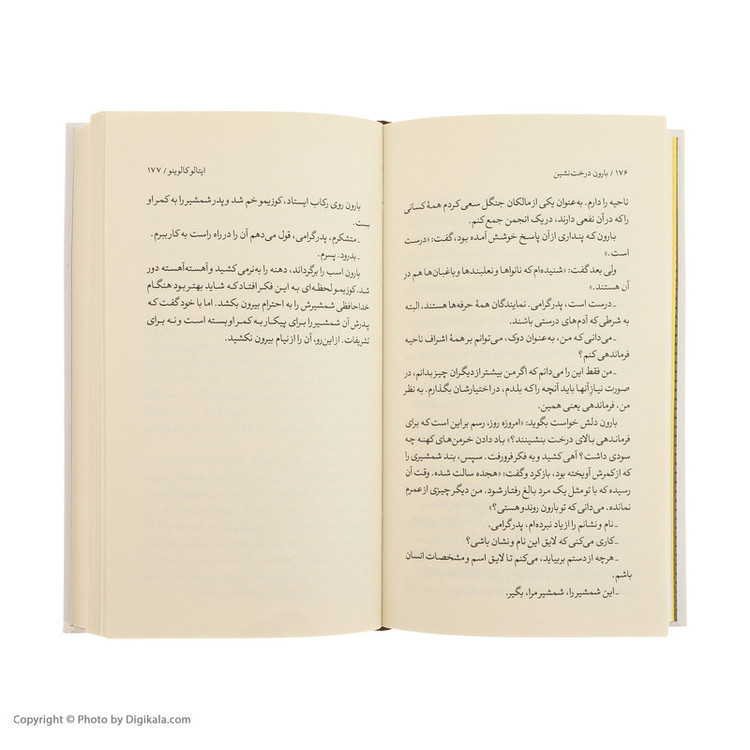 ۱۷۶ / بارون درخت‌نشین
ناحیه را دارم. به‌عنوان یکی از مالکان جنگل سعی کردم همهٔ کسانی
را که در آن نفعی دارند، در یک انجمن جمع کنم.
بارون که پنداری از آن پاسخ خوشش آمده بود، گفت: «درست
است.»
ولی بعد گفت: «شنیده‌ام که نانواها و نعلبندها و باغبان‌ها هم در
آن هستند.»
ـ درست است، پدر گرامی. نمایندگان همهٔ حرفه‌ها هستند، البته
به شرطی که آدم‌های درستی باشند.
ـ می‌دانی که من، به‌عنوان دوک، می‌توانم بر همهٔ اشراف ناحیه
فرماندهی کنم؟
ـ من فقط این را می‌دانم که اگر من بیشتر از دیگران چیز بدانم، در
صورت نیاز آنها باید آنچه را که بلدم، در اختیارشان بگذارم. به نظر
من، فرماندهی یعنی همین.
بارون دلش خواست بگوید: «امروزه روز، رسم بر این است که برای
فرماندهی بالای درخت بنشینند؟» باد دادن خرمن‌های کهنه چه
سودی داشت؟ آهی کشید و به فکر فرو رفت. سپس، بند شمشیری را
که از کمرش آویخته بود، باز کرد و گفت: «هجده سالت شده. وقت آن
رسیده که با تو مثل یک مرد بالغ رفتار شود. من دیگر چیزی از عمرم
نمانده. می‌دانی که تو بارون روندو هستی؟»
ـ نام و نشانم را از یاد نبرده‌ام، پدر گرامی.
ـ کاری می‌کنی که لایق این نام و نشان باشی؟
ـ هرچه از دستم بربیاید، می‌کنم تا لایق اسم و مشخصات انسان
باشم.
ـ این شمشیر را، شمشیر مرا، بگیر.
ایتالو کالوینو / ۱۷۷
بارون روی رکاب ایستاد، کوزیمو خم شد و پدر شمشیر را به کمر او
بست.
ـ متشکرم، پدر گرامی، قول می‌دهم آن را در راه راست به کار ببرم.
ـ بدرود. پسرم.
بارون اسب را برگرداند، دهنه را به نرمی کشید و آهسته آهسته دور
شد. کوزیمو لحظه‌ای به این فکر افتاد که شاید بهتر بود هنگام
خداحافظی شمشیرش را به احترام بیرون بکشد. اما با خود گفت که
پدرش آن شمشیر را برای پیکار به کمر او بسته است و نه برای
تشریفات. از این رو، آن را از نیام بیرون نکشید.
Copyright © Photo by Digikala.com